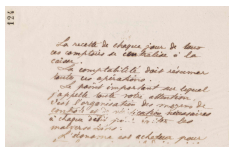 124
La recette de chaque jour de tous
ces comptoirs se centralise à la
caisse.
La comptabilité doit résumer
toutes ces opérations.
Le point important sur lequel
j'appelle toute votre attention,
c'est l'organisation des moyens de
contrôle et de nécessaires
à chaque
malversations.
L'économe est acheteur pour